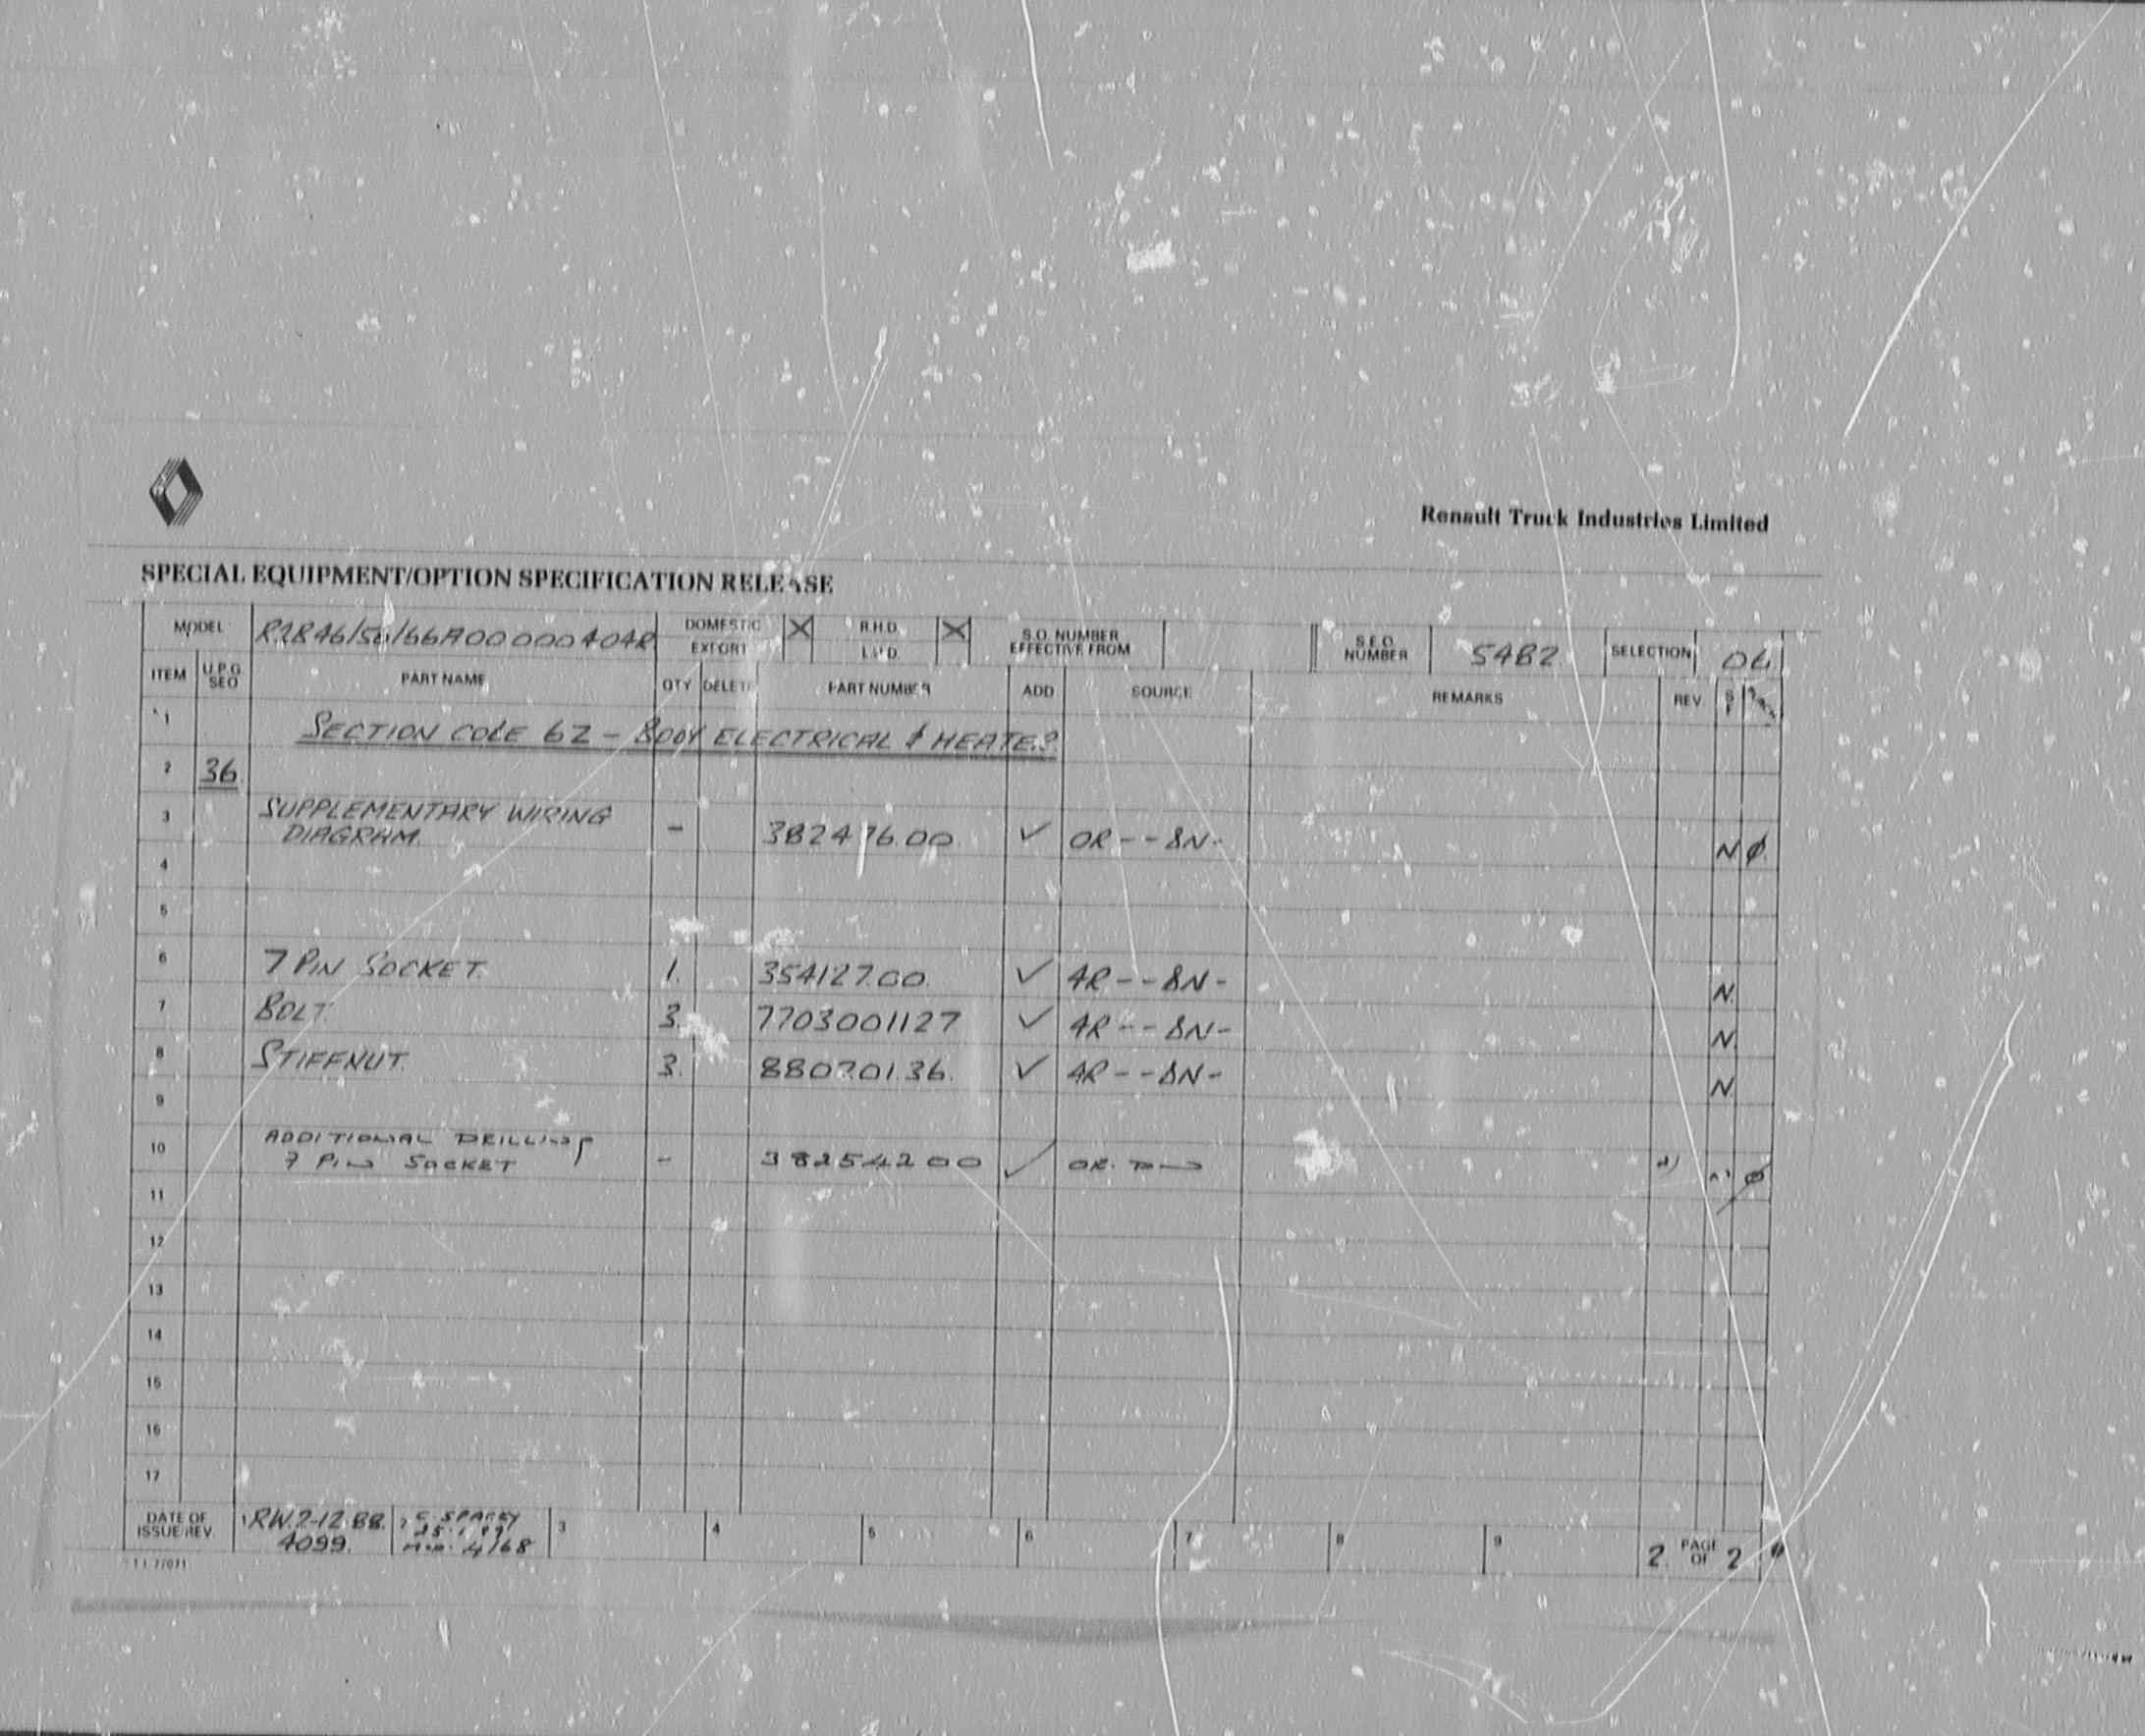 Renault Truck Industries Limited
SPECIAL EQUIPMENT/OPTION SPECIFICATION RELEASE
MODEL R2846/56/66A00000404R DOMESTIC X R.H.D. X S.O. NUMBER EFFECTIVE FROM S.E.O. NUMBER 5482 SELECTION 04
EXPORT L.H.D.
ITEM U.P.G. SEO PART NAME QTY DELETE PART NUMBER ADD SOURCE REMARKS REV
1 SECTION CODE 62 - BODY ELECTRICAL & HEATERS
2 36
3 SUPPLEMENTARY WIRING
DIAGRAM. - 3824 76.00 ✓ OR - - 8N - N Ø
4
5
6 7 PIN SOCKET. 1. 354127.00. ✓ 4R - - 8N - N
7 BOLT. 3. 7703001127 ✓ 4R - - 8N - N
8 STIFFNUT. 3. 88070136. ✓ 4R - - 8N - N
9
10 ADDITIONAL DRILLING
7 PIN SOCKET - 38254200 ✓ OR. Ø
11
12
13
14
15
16
17
DATE OF ISSUE/REV 1 RW. 2-12.88. 2 C. SPAREY 3 4 5 6 7 8 9 2. PAGE OF 2
4099. 25.1.89
4168